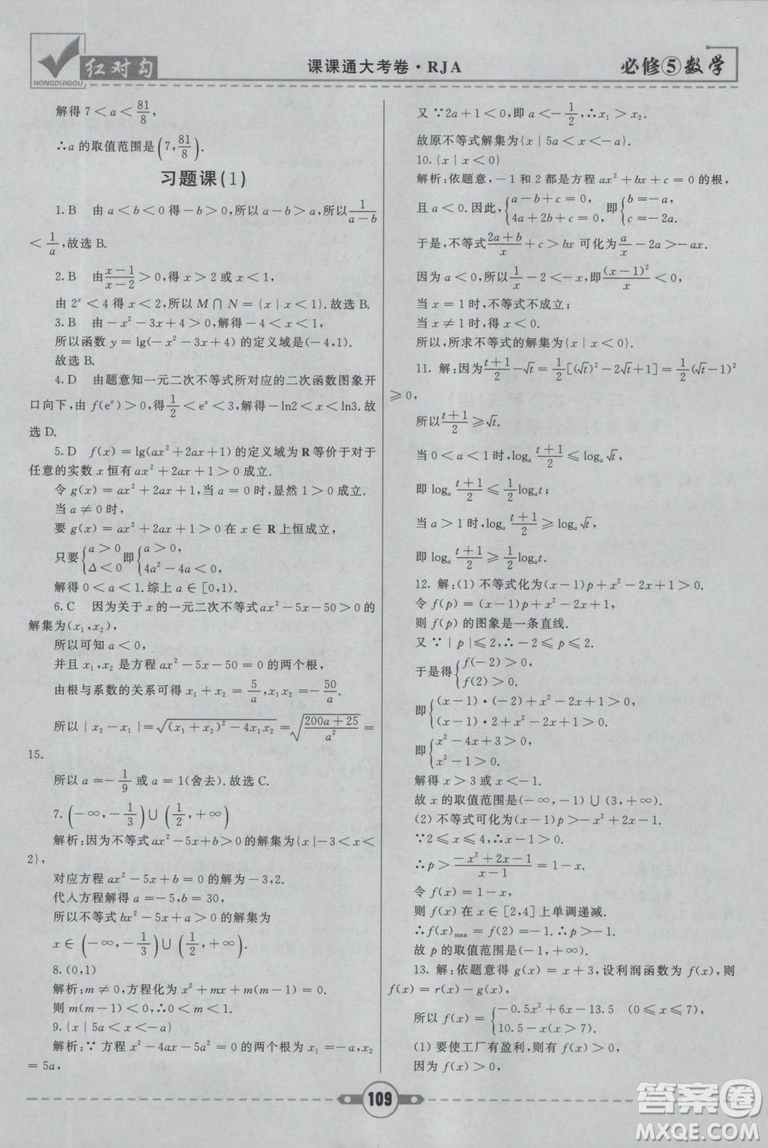 红对勾
HONGDUIGOU
课课通大考卷·RJA
必修⑤数学
解得 7<a<81/8,
∴a 的取值范围是(7, 81/8).
习题课(1)
1. B 由 a<b<0 得 -b>0,所以 a-b>a,所以 1/(a-b)
<1/a,故选 B.
2. B 由(x-1)/(x-2)>0,得 x>2 或 x<1,
由 2ˣ<4,得 x<2,所以 M∩N={x|x<1},故选 B.
3. B 由 -x²-3x+4>0,解得 -4<x<1,
所以函数 y=lg(-x²-3x+4)的定义域是(-4,1).
故选 B.
4. D 由题意知一元二次不等式所对应的二次函数图象开
口向下,由 f(eˣ)>0,得 1/2<eˣ<3,解得 -ln2<x<ln3.故
选 D.
5. D f(x)=lg(ax²+2ax+1)的定义域为 R 等价于对于
任意的实数 x 恒有 ax²+2ax+1>0 成立.
令 g(x)=ax²+2ax+1,当 a=0 时,显然 1>0 成立.
当 a≠0 时,
要 g(x)=ax²+2ax+1>0 在 x∈R 上恒成立,
只要{a>0 Δ<0 即{a>0 4a²-4a<0,
解得 0<a<1.综上 a∈[0,1).
6. C 因为关于 x 的一元二次不等式 ax²-5x-50>0 的
解集为(x₁,x₂),
所以可知 a<0,
并且 x₁,x₂ 是方程 ax²-5x-50=0 的两个根,
由根与系数的关系可得 x₁+x₂=5/a,x₁x₂=-50/a.
所以|x₂-x₁|=√((x₁+x₂)²-4x₁x₂)=√((200a+25)/a²)=
15.
所以 a=-1/9 或 a=1(舍去).故选 C.
7. (-∞,-1/3)∪(1/2,+∞)
解析:因为不等式 ax²-5x+b>0 的解集为{x|-3<x<
2},
对应方程 ax²-5x+b=0 的解为 -3,2.
代入方程解得 a=-5,b=30,
所以不等式 bx²-5x+a>0 的解集为
x∈(-∞,-1/3)∪(1/2,+∞).
8. (0,1)
解析:m≠0,方程化为 x²-mx+m(m-1)=0.
则 m(m-1)<0,解得 0<m<1.
9. {x|5a<x<-a}
解析:∵方程 x²-4ax-5a²=0 的两根为 x₁=-a,x₂
=5a,
又∵2a+1<0,即 a<-1/2,∴x₁>x₂.
故原不等式解集为{x|5a<x<-a}.
10. {x|x<0}
解析:依题意,-1 和 2 都是方程 ax²+bx+c=0 的根,
且 a<0.因此,{a-b+c=0, 4a+2b+c=0, 即{b=-a, c=-2a.
于是,不等式(2a+b)/x+c>bx 可化为 a/x-2a>-ax.
因为 a<0,所以 1/x-2<-x,即(x-1)²/x<0.
当 x=1 时,不等式不成立;
当 x≠1 时,得 x<0.
所以,所求不等式的解集为{x|x<0}.
11. 解:因为(t+1)/2-√t=1/2[(√t)²-2√t+1]=1/2(√t-1)²
≥0,
所以(t+1)/2≥√t.
当 0<a<1 时,logₐ(t+1)/2≤logₐ√t,
即 logₐ(t+1)/2≤1/2logₐt;
当 a>1 时,logₐ(t+1)/2≥logₐ√t,
即 logₐ(t+1)/2≥1/2logₐt.
12. 解:(1)不等式化为(x-1)p+x²-2x+1>0.
令 f(p)=(x-1)p+x²-2x+1,
则 f(p)的图象是一条直线.
又∵|p|≤2,∴-2≤p≤2,
于是得{f(-2)>0, f(2)>0.
即{(x-1)·(-2)+x²-2x+1>0, (x-1)·2+x²-2x+1>0.
即{x²-4x+3>0, x²-1>0.
解得 x>3 或 x<-1.
故 x 的取值范围是(-∞,-1)∪(3,+∞).
(2)不等式可化为(x-1)p>-x²+2x-1.
∵2≤x≤4,∴x-1>0.
∴p>(-x²+2x-1)/(x-1)=1-x.
令 f(x)=1-x,
则 f(x)在 x∈[2,4]上单调递减.
∴f(x)max=f(2)=-1.∴p>-1.
故 p 的取值范围是(-1,+∞).
13. 解:依题意得 g(x)=x+3,设利润函数为 f(x),则
f(x)=r(x)-g(x),
所以 f(x)={-0.5x²+6x-13.5 (0≤x≤7) 10.5-x(x>7),
(1)要使工厂有盈利,则有 f(x)>0,
109
答案圈
MXQE.COM